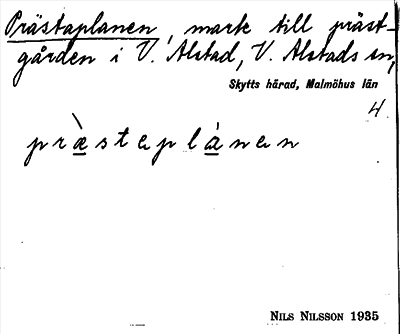 Prästaplanen, mark till präst-
gården i V. Alstad, V. Alstads sn,
Skytts härad, Malmöhus län
4
præ̀steplánen
NILS NILSSON 1935